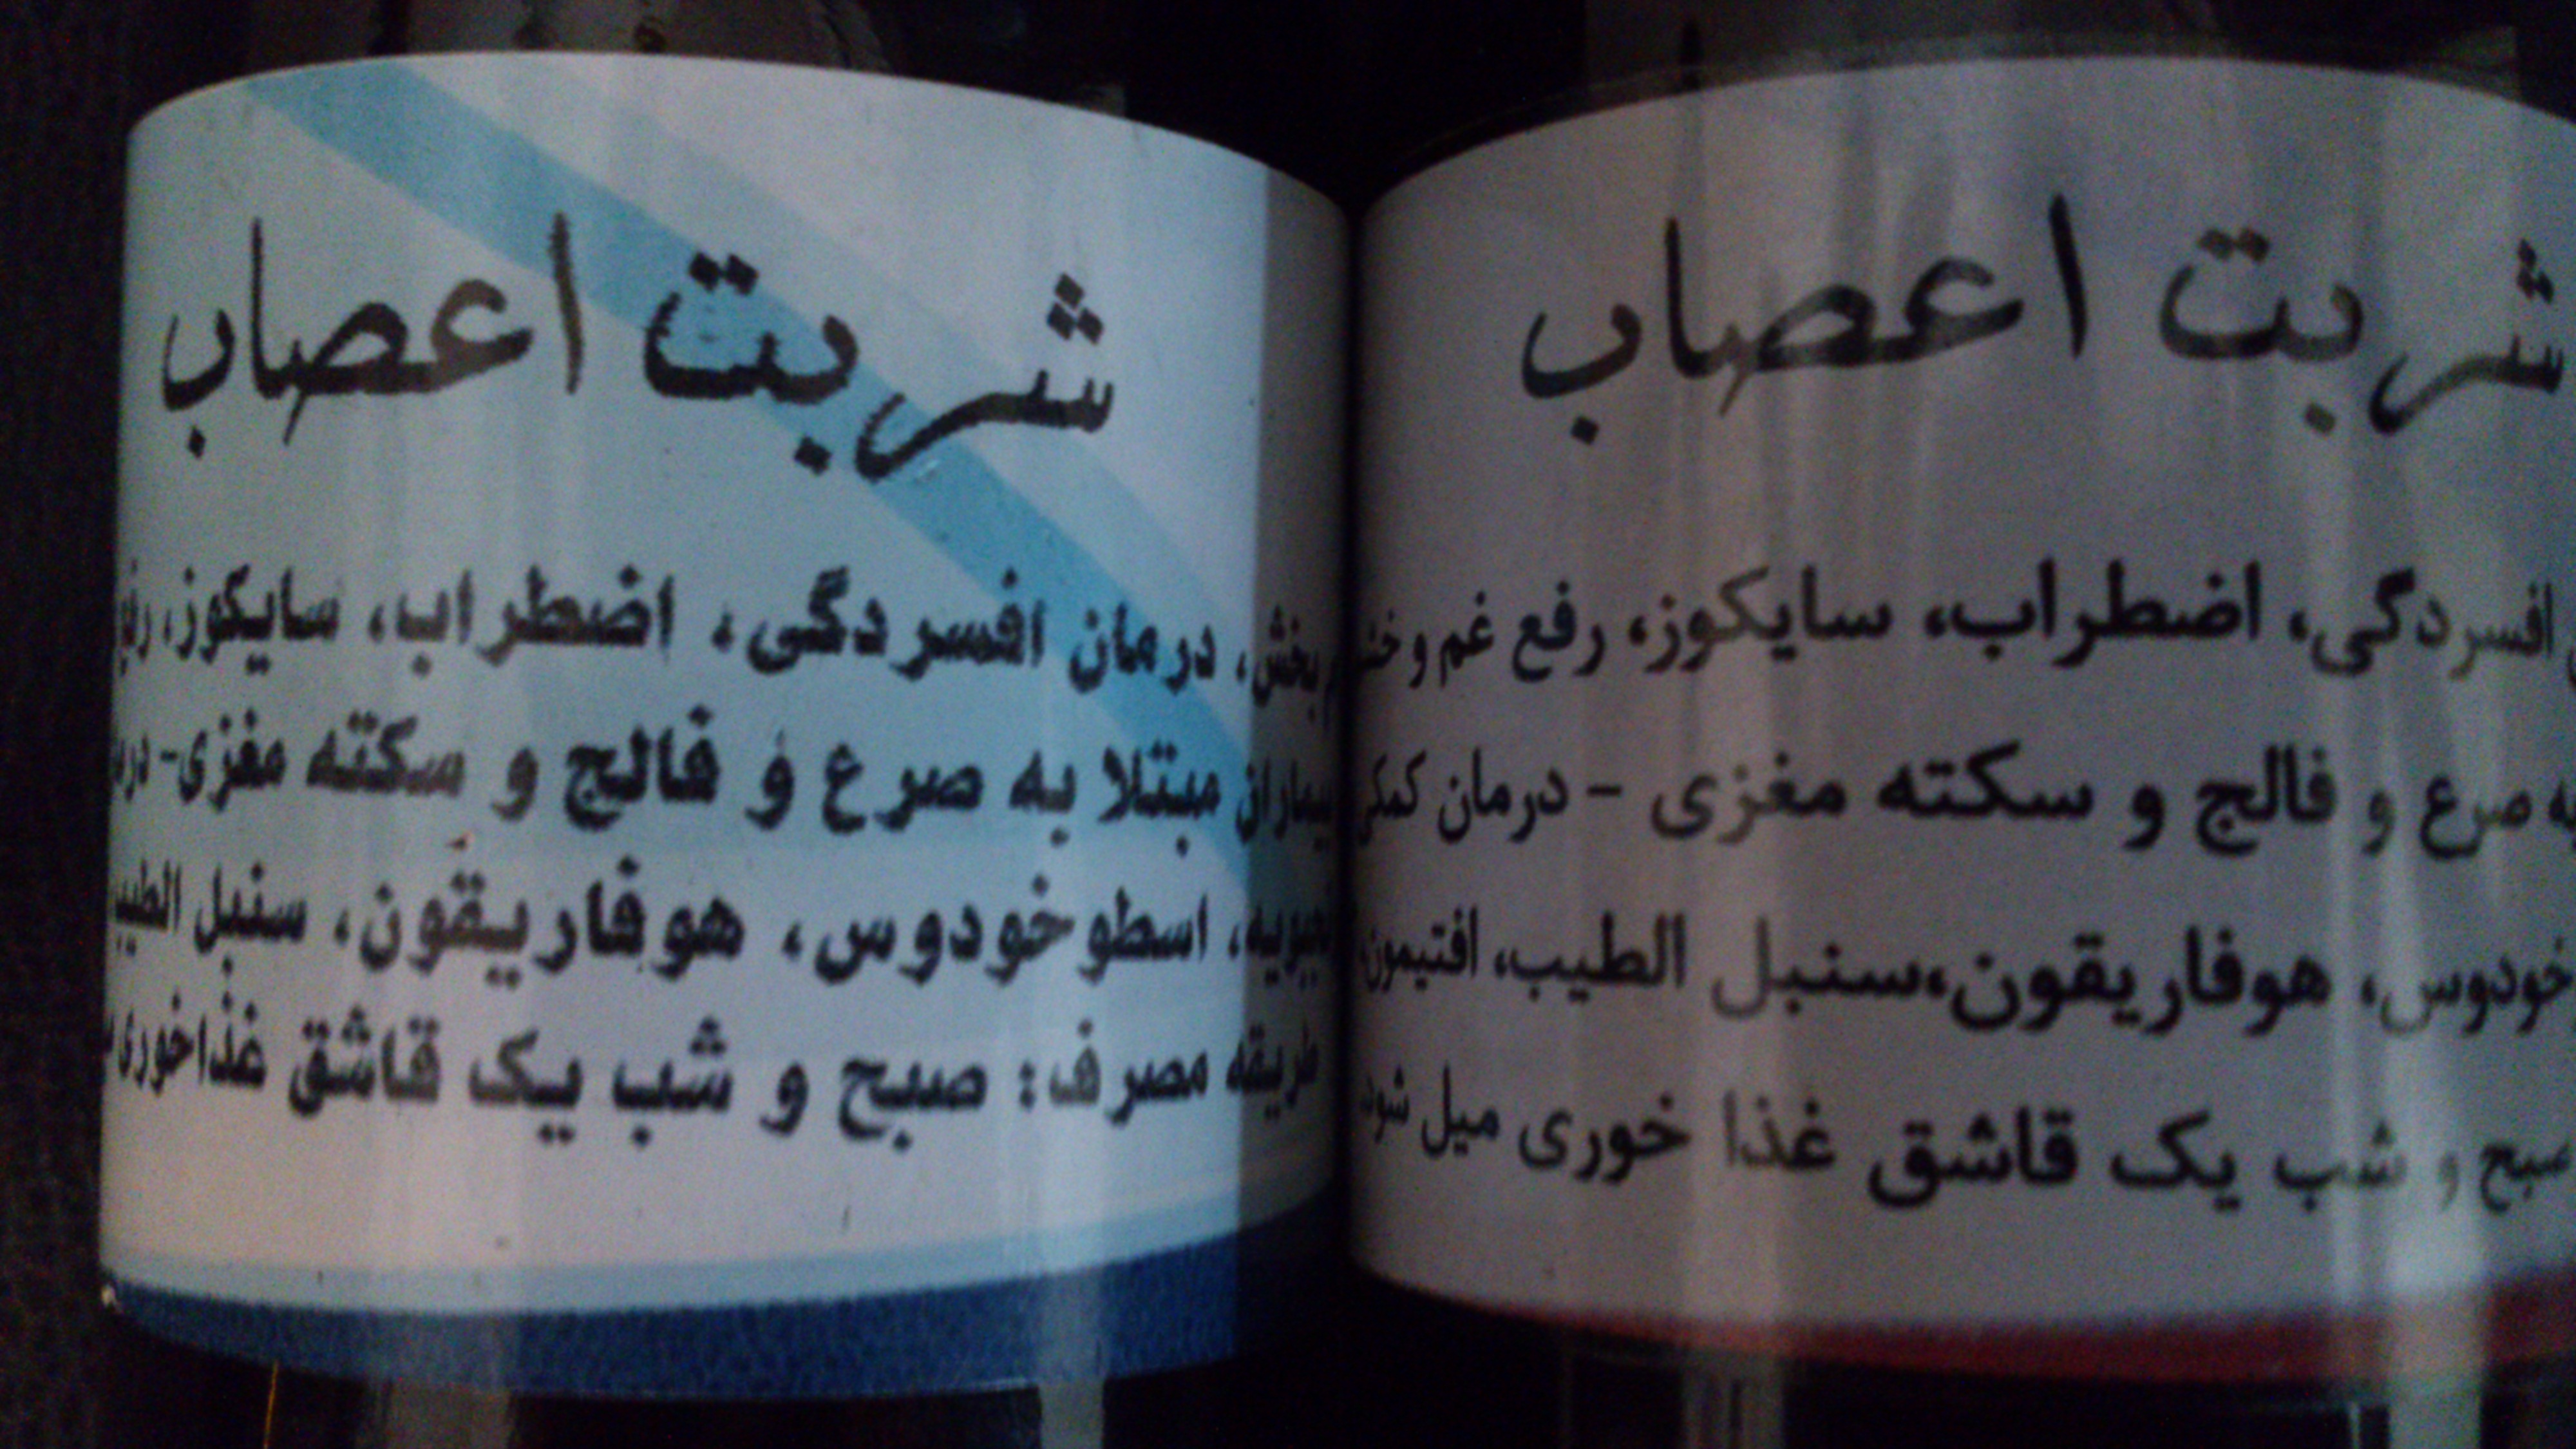 شربت اعصاب
بخش، درمان افسردگی، اضطراب، سایکوز، رفع
بیماران مبتلا به صرع و فالج و سکته مغزی-
اسطوخودوس، هوفاریقون، سنبل الطیب
طریقه مصرف: صبح و شب یک قاشق غذاخوری
شربت اعصاب
افسردگی، اضطراب، سایکوز، رفع غم و
صرع و فالج و سکته مغزی - درمان کمکی
خودوس، هوفاریقون،سنبل الطیب، افتیمون،
صبح و شب یک قاشق غذا خوری میل شود